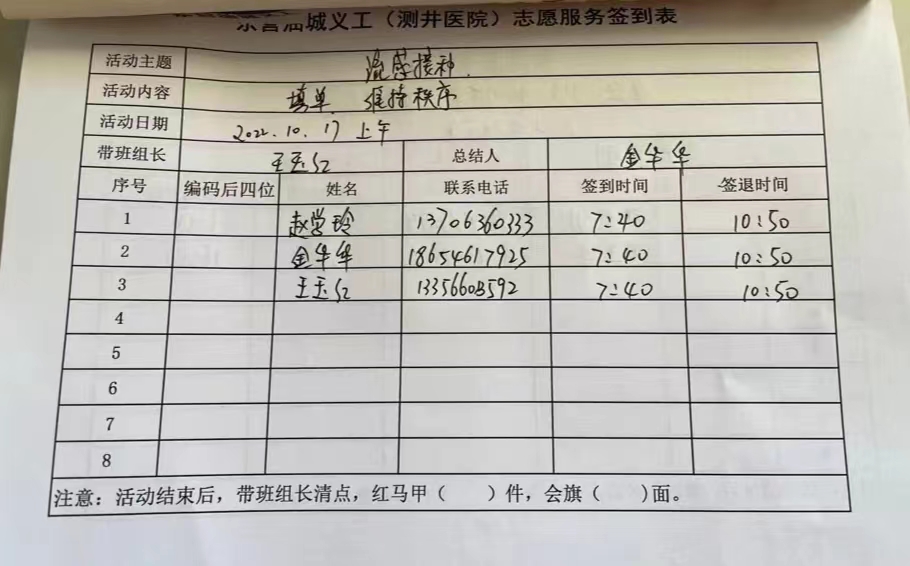 东营油城义工（测井医院）志愿服务签到表
活动主题 流感接种
活动内容 填单 维持秩序
活动日期 2022.10.17 上午
带班组长 王玉红 总结人 金华华
序号 编码后四位 姓名 联系电话 签到时间 签退时间
1 赵学玲 13706360333 7:40 10:50
2 金华华 18654617925 7:40 10:50
3 王玉红 13356608592 7:40 10:50
4
5
6
7
8
注意：活动结束后，带班组长清点，红马甲（ ）件，会旗（ ）面。